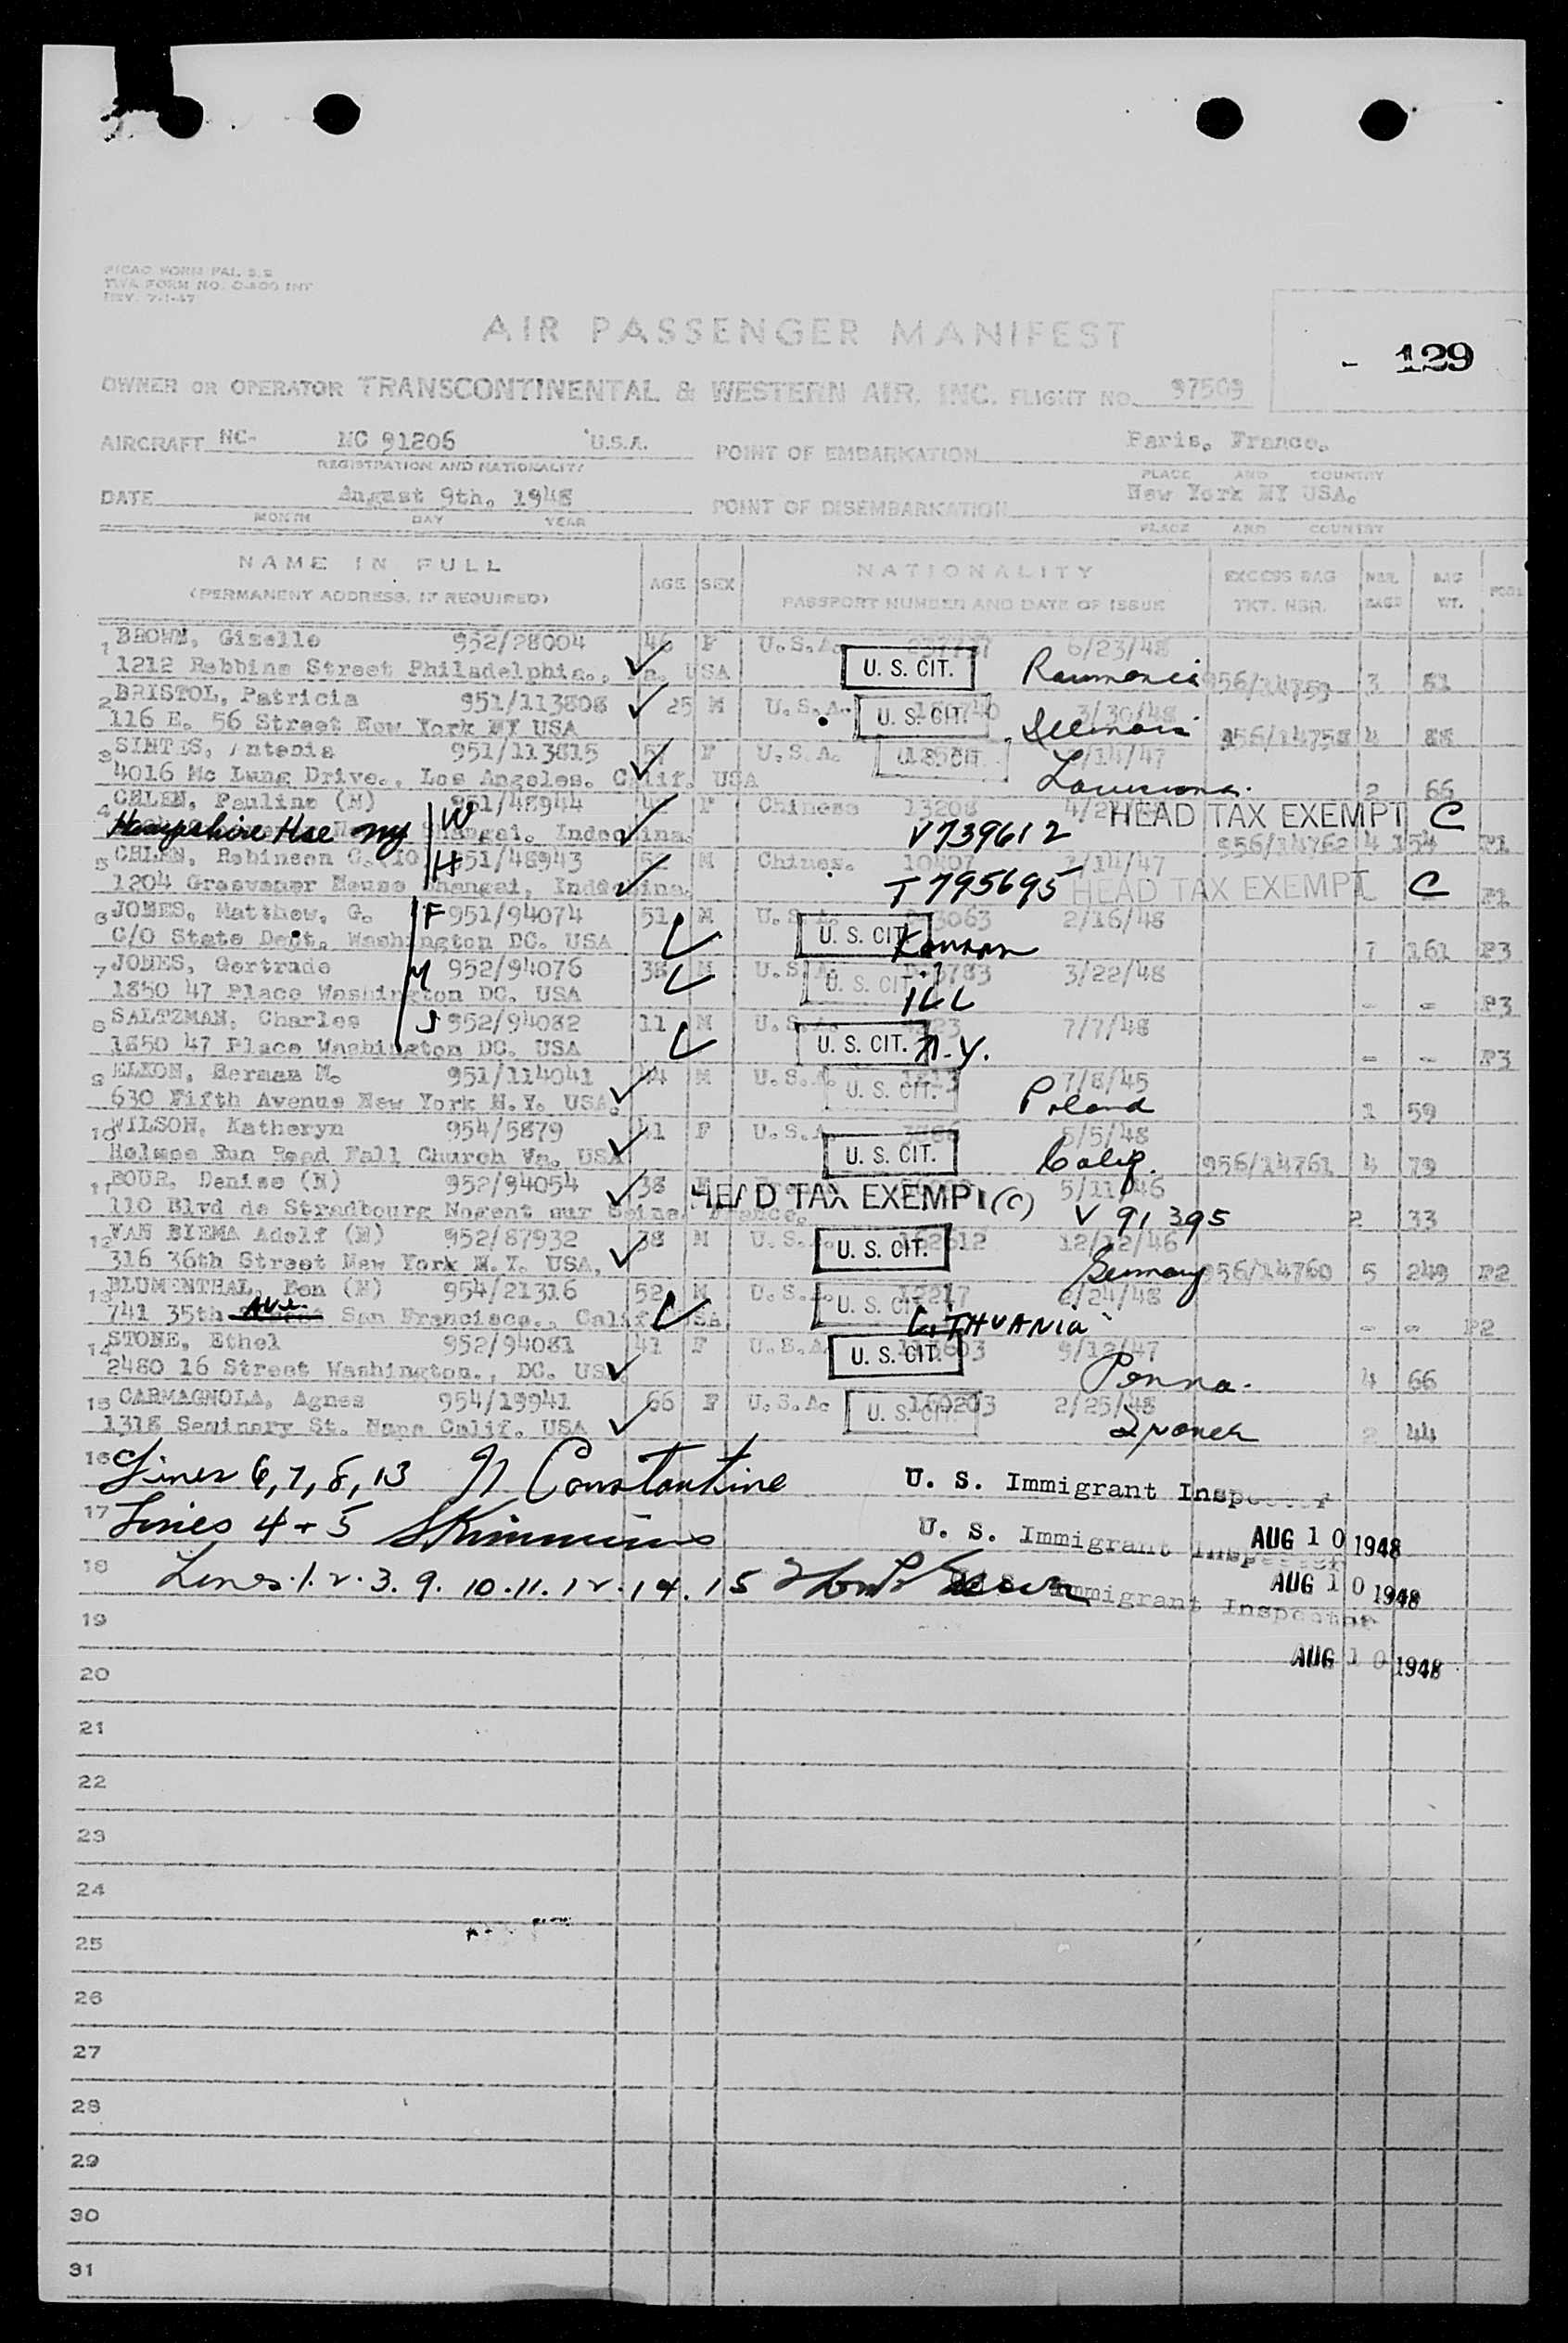 PICAO FORM PAL S.2
TWA FORM NO. O-400 INT
REV. 7-1-47
AIR PASSENGER MANIFEST
- 129
OWNER OR OPERATOR TRANSCONTINENTAL & WESTERN AIR, INC. FLIGHT NO. 97509
AIRCRAFT NC- NC 91206 U.S.A. POINT OF EMBARKATION Paris, France.
REGISTRATION AND NATIONALITY PLACE AND COUNTRY
DATE August 9th, 1948 POINT OF DISEMBARKATION New York NY USA.
MONTH DAY YEAR PLACE AND COUNTRY
NAME IN FULL AGE SEX NATIONALITY EXCESS BAG NBR. BAG POOL
(PERMANENT ADDRESS, IF REQUIRED) PASSPORT NUMBER AND DATE OF ISSUE TKT. NBR. BAGS WT.
1 BROWN, Giselle 952/28004 46 F U.S.A. 6/23/48
1212 Robbins Street Philadelphia., Pa. USA U. S. CIT. Roumania 956/14759 3 81
2 BRISTOL, Patricia 951/113808 25 M U.S.A. 3/30/48
116 E. 56 Street New York NY USA U. S. CIT. Illinois 956/14758 4 88
3 SINTES, Antonia 951/113815 F U.S.A. /14/47
4016 Mc Lung Drive., Los Angeles. Calif. USA U. S. CIT. Louisiana. 2 66
4 CHLEN, Pauline (M) W 951/48944 42 F Chinese 13208 HEAD TAX EXEMPT C
Hampshire Hse NY Shangai, Indochina. V739612 956/14762 4 154 P1
5 CHLEN, Robinson C. H 951/48943 52 M Chines. 10407 7/14/47
1204 Grosvenor House Shangai, Indochina. T 795695 HEAD TAX EXEMPT C P1
6 JONES, Matthew, G. F 951/94074 51 M U.S.A. 3063 2/16/48
C/O State Dept. Washington DC. USA U. S. CIT. Kansas 7 161 P3
7 JONES, Gertrude M 952/94076 38 M U.S.A. 3783 3/22/48
1850 47 Place Washington DC. USA U. S. CIT. ILL - - P3
8 SALTZMAN, Charles S 952/94082 11 M U.S.A. 7/7/48
1850 47 Place Washington DC. USA U. S. CIT. N.Y. - - P3
9 ELKON, Herman N. 951/114041 44 M U.S.A. 7/8/45
630 Fifth Avenue New York N.Y. USA. U. S. CIT. Poland 1 59
10 WILSON, Katheryn 954/5879 41 F U.S.A. 5/5/48
Holmes Run Road Fall Church Va. USA U. S. CIT. Calif. 956/14761 4 79
11 BOUR, Denise (M) 952/94054 38 F HEAD TAX EXEMPT (C) 5/11/46
110 Blvd de Stradbourg Nogent sur Seine, France. V 91395 2 33
12 VAN BIEMA Adolf (M) 952/87932 38 M U.S.A. 12/12/46
316 36th Street New York N.Y. USA. U. S. CIT. Germany 956/14760 5 249 P2
13 BLUMENTHAL, Ben (M) 954/21316 52 M U.S.A. 12217 2/24/48
741 35th Ave. San Francisco., Calif. USA U. S. CIT. LITHUANIA - - P2
14 STONE, Ethel 952/94081 41 F U.S.A. 9/12/47
2480 16 Street Washington., DC. USA U. S. CIT. Penna. 4 66
15 CARMAGNOLA, Agnes 954/19941 66 F U.S.A. 160203 2/25/48
1318 Seminary St. Napa Calif. USA U. S. CIT. France 2 44
16 Lines 6, 7, 8, 13 N Constantine U. S. Immigrant Inspector
17 Lines 4 + 5 Skimmins U. S. Immigrant Inspector AUG 10 1948
18 Lines 1. 2. 3. 9. 10. 11. 12. 14. 15 U. S. Immigrant Inspector AUG 10 1948
19
20 AUG 10 1948
21
22
23
24
25
26
27
28
29
30
31